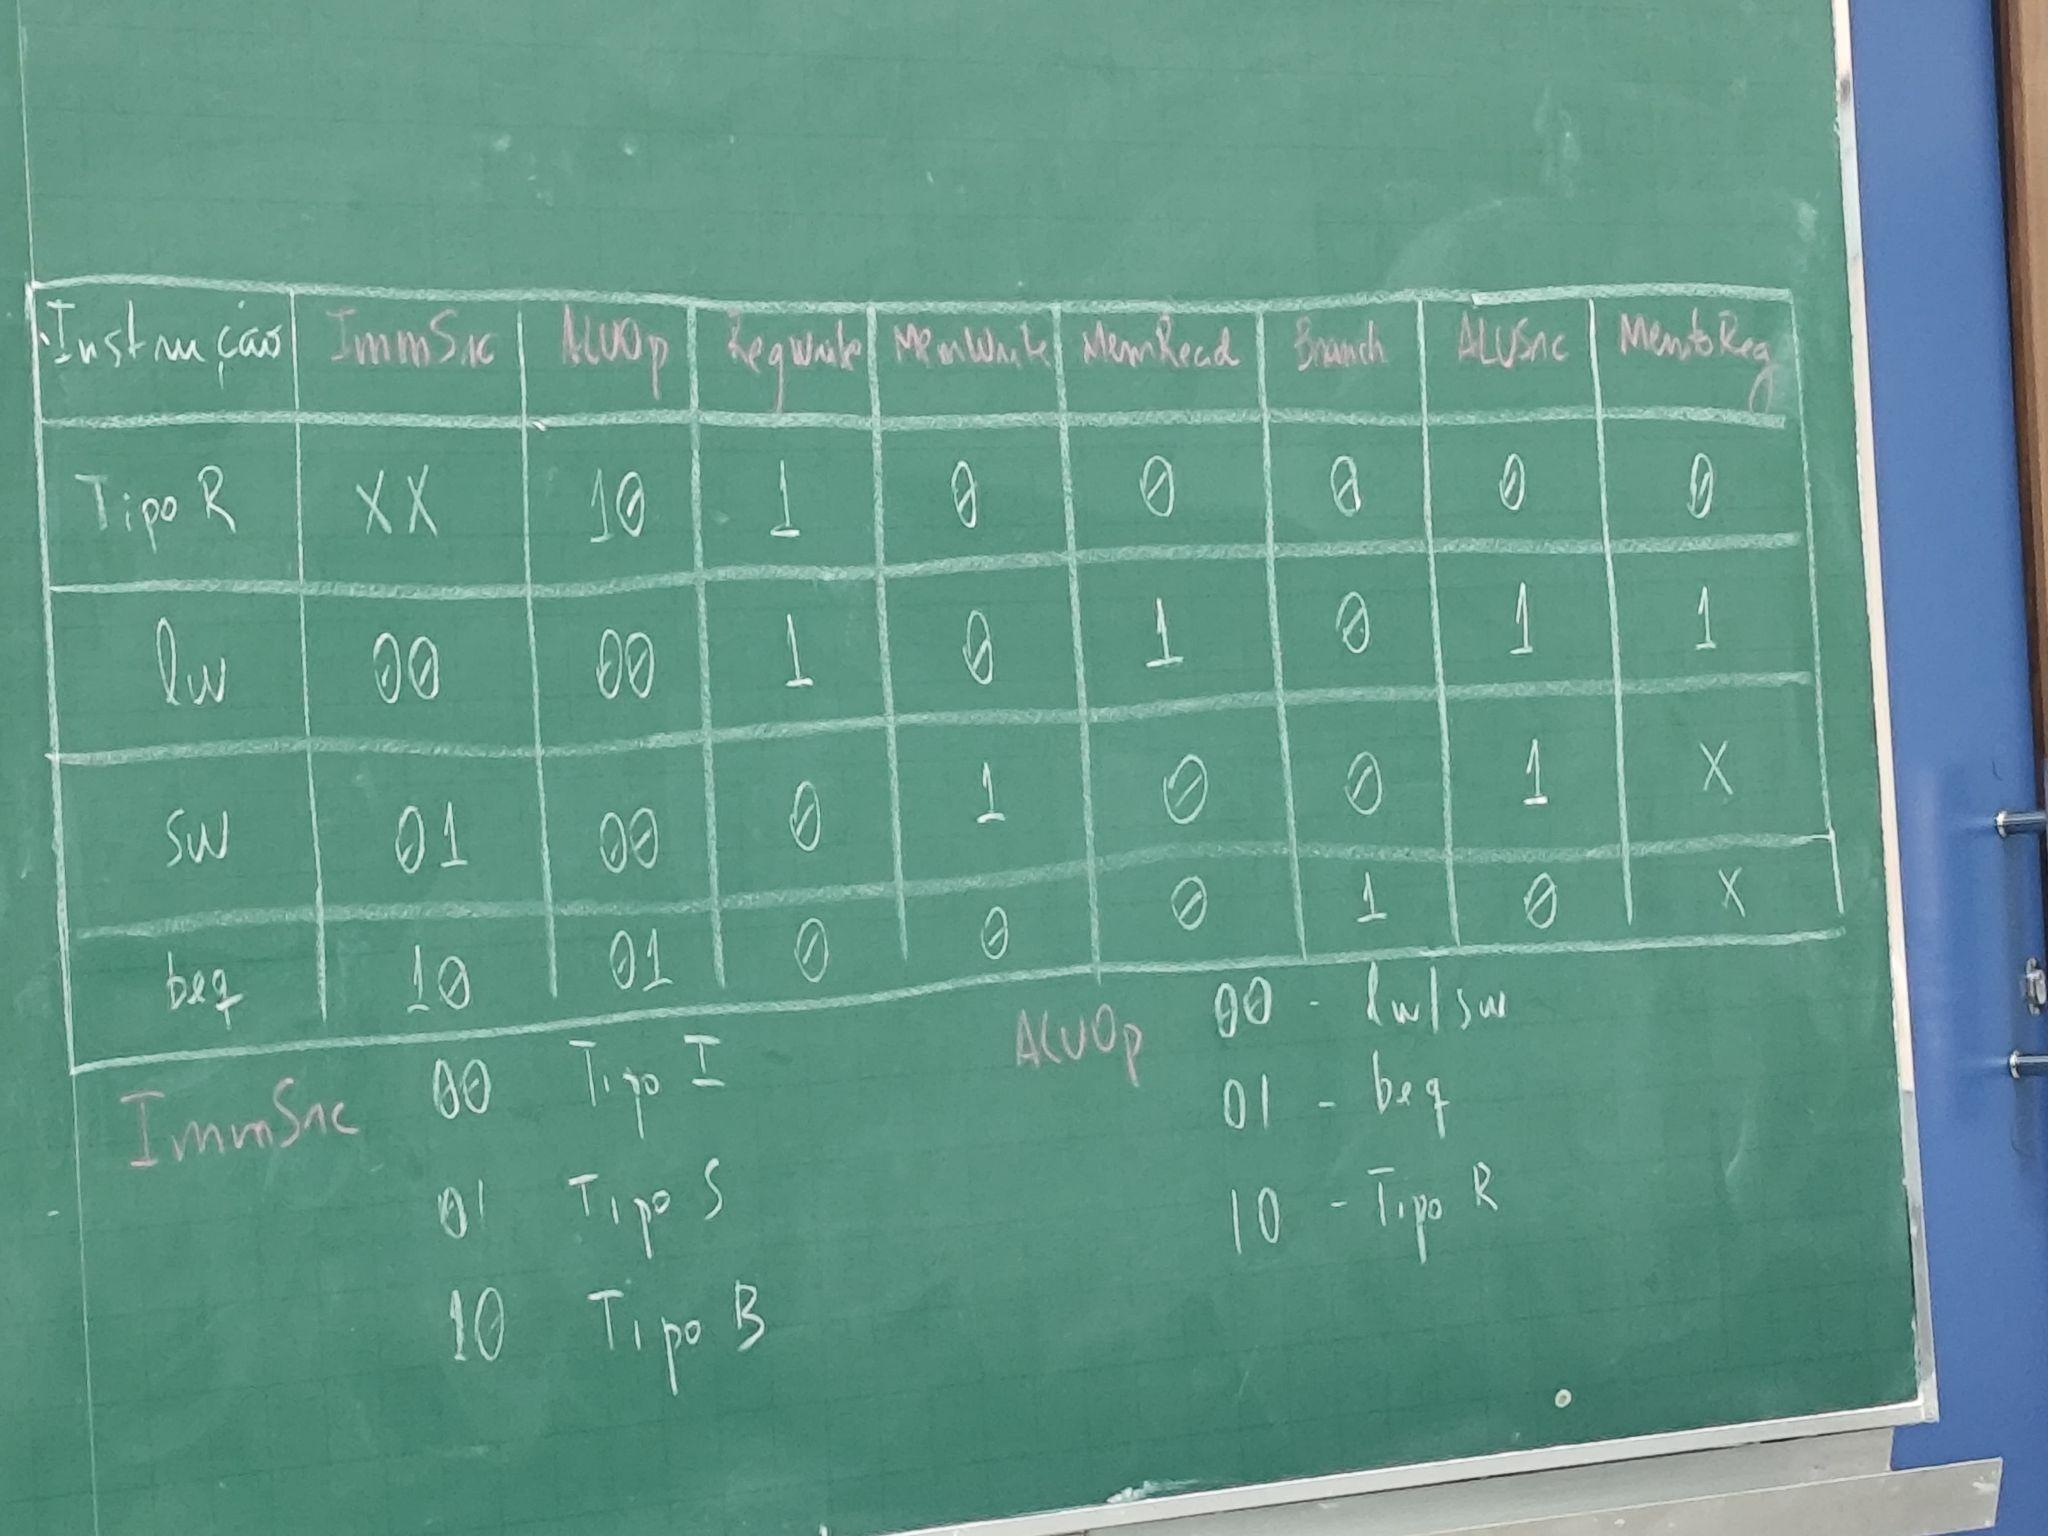 Instrução ImmSrc ALUOp RegWrite MemWrite MemRead Branch ALUSrc MemtoReg
Tipo R XX 10 1 0 0 0 0 0
lw 00 00 1 0 1 0 1 1
sw 01 00 0 1 0 0 1 X
beq 10 01 0 0 0 1 0 X
ImmSrc 00 Tipo I
01 Tipo S
10 Tipo B
ALUOp 00 - lw/sw
01 - beq
10 - Tipo R